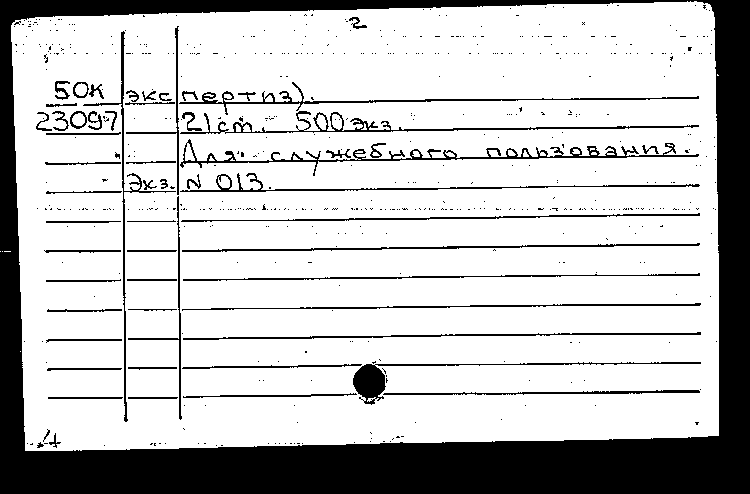 2
50к экспертиз).
23097 21 cm. 500 экз.
Для служебного пользования.
Экз. N 013.
4